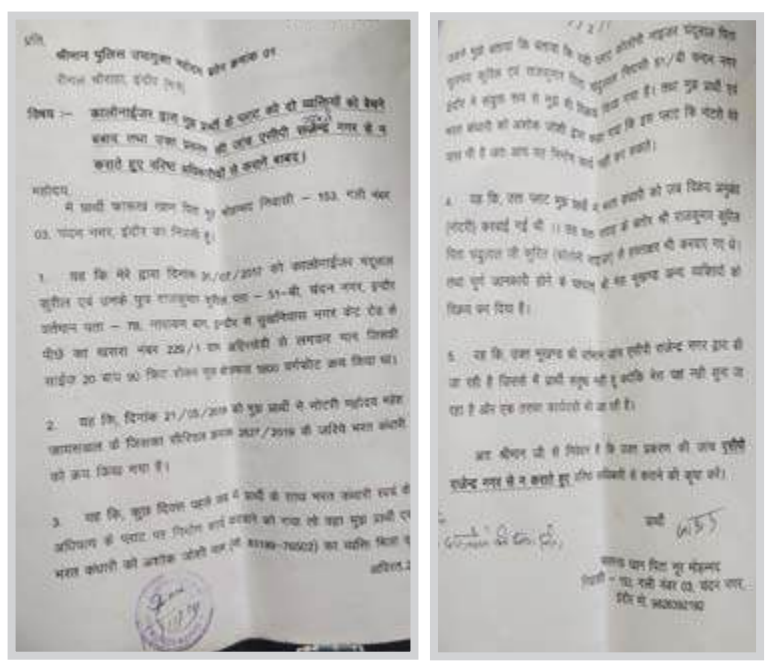 प्रति,
श्रीमान पुलिस उपायुक्त महोदय झोन क्रमांक 01
रीगल चौराहा, इंदौर (मप्र)
विषय :- कालोनाईजर द्वारा मुझ प्रार्थी के प्लाट को दो व्यक्तियों को बेचने
बाबद तथा उक्त प्रकरण की जांच एसीपी राजेन्द्र नगर से न
कराते हुए वरिष्ठ अधिकारीयों से कराने बाबद।
महोदय,
में प्रार्थी फारूख खान पिता नूर मोहम्मद निवासी - 153, गली नंबर
03, चंदन नगर, इंदौर का निवासी हूं।
1. यह कि मेरे द्वारा दिनांक 31/07/2017 को कालोनाईजर चंदुलाल
सुरील एवं उनके पुत्र राजकुमार सुरील पता - 51-बी, चंदन नगर, इन्दौर
वर्तमान पता - 79, नारायण बाग, इन्दौर से सुखनिवास नगर केट रोड के
पीछे का खसरा नंबर 229/1 ग्राम से लगकर जिसकी
साईज 20 बाय 90 फिट कुल क्षेत्रफल 1800 वर्गफीट क्रय किया था।
2. यह कि, दिनांक 21/05/2019 को मुझ प्रार्थी ने नोटरी महोदय महेश
जायसवाल के जिसका सीरियल क्रमांक 2627/2019 के जरिये भरत कंधारी
को क्रय किया गया है।
3. यह कि, कुछ दिवस पहले जब में प्रार्थी के साथ भरत कंधारी स्वयं के
अधिपत्य के प्लाट पर निर्माण कार्य करवाने को गया तो वहा मुझ प्रार्थी एवं
भरत कंधारी को अशोक जोशी नाम (मो. 93199-76502) का व्यक्ति मिला
अविरत.2
//2//
उसने मुझे बताया कि बताया कि यही प्लाट कॉलोनी नाइजर चंदुलाल पिता
सुरील एवं राजकुमार पिता चंदुलाल निवासी 51/बी चन्दन नगर
इंदौर ने संयुक्त रूप से मुझे भी विक्रय किया गया है। तथा मुझ प्रार्थी एवं
भरत कंधारी को अशोक जोशी द्वारा कहा गया कि इस प्लाट कि नोटरी मेरे
पास भी है अतः आप यह निर्माण कार्य नहीं कर सकते।
4. यह कि, उक्त प्लाट मुझ प्रार्थी ने भरत कंधारी को जब विक्रय अनुबंध
(नोटरी) करवाई गई थी ।। तब के बतौर श्री राजकुमार सुरिल
पिता चंदुलाल जी सुरिल से हस्ताक्षर भी करवाए गए थे।
तथा पूर्ण जानकारी होने के पश्चात् भी यह भूखण्ड अन्य व्यक्तियों को
विक्रय कर दिया है।
5. यह कि, उक्त भूखण्ड की जांच एसीपी राजेन्द्र नगर द्वारा की
जा रही है जिससे में प्रार्थी संतुष्ट नही हूं क्योंकि मेरा पक्ष नही सुना जा
रहा है और एक तरफा कार्यवाही की जा रही है।
अतः श्रीमान जी से निवेदन है कि उक्त प्रकरण की जांच एसीपी
राजेन्द्र नगर से न कराते हुए वरिष्ठ अधिकारी से कराने की कृपा करें।
प्रार्थी
खान पिता नूर मोहम्मद
निवासी - 153, गली नंबर 03, चंदन नगर,
इंदौर मो. 9826392192